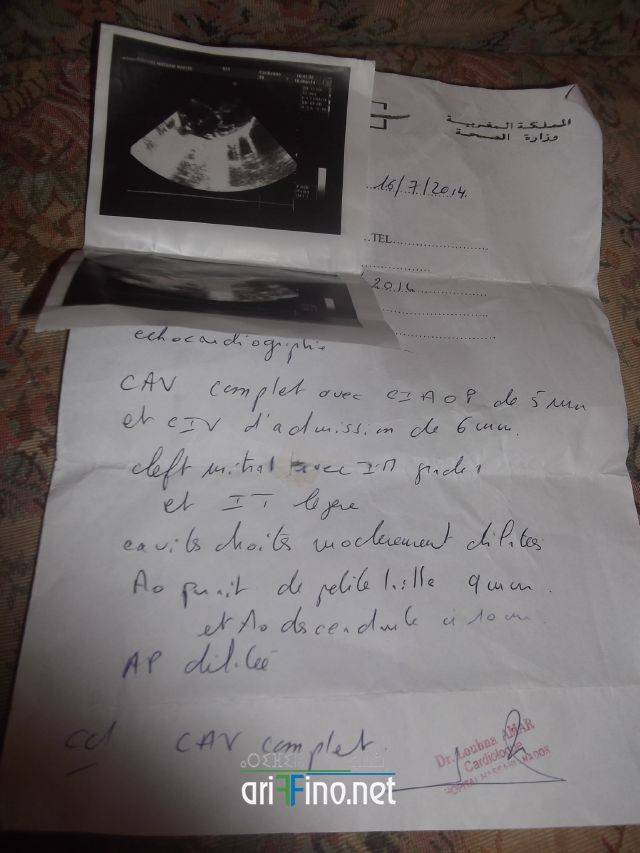 المملكة المغربية
وزارة الصحة
16/7/2014
TEL
2014
echocardiographie
CAV complet avec CIA OP de 5 mm
et CIV d'admission de 6 mm.
cleft mitral avec IM grade 1
et IT légère
cavités droites modérement dilatées
Ao parait de petite taille 9 mm.
et Ao descendante à 10 mm
AP dilatée
ccl CAV complet.
Dr. Loubna AMAR
Cardiologue
HOPITAL HASSANI NADOR
ariFFino.net